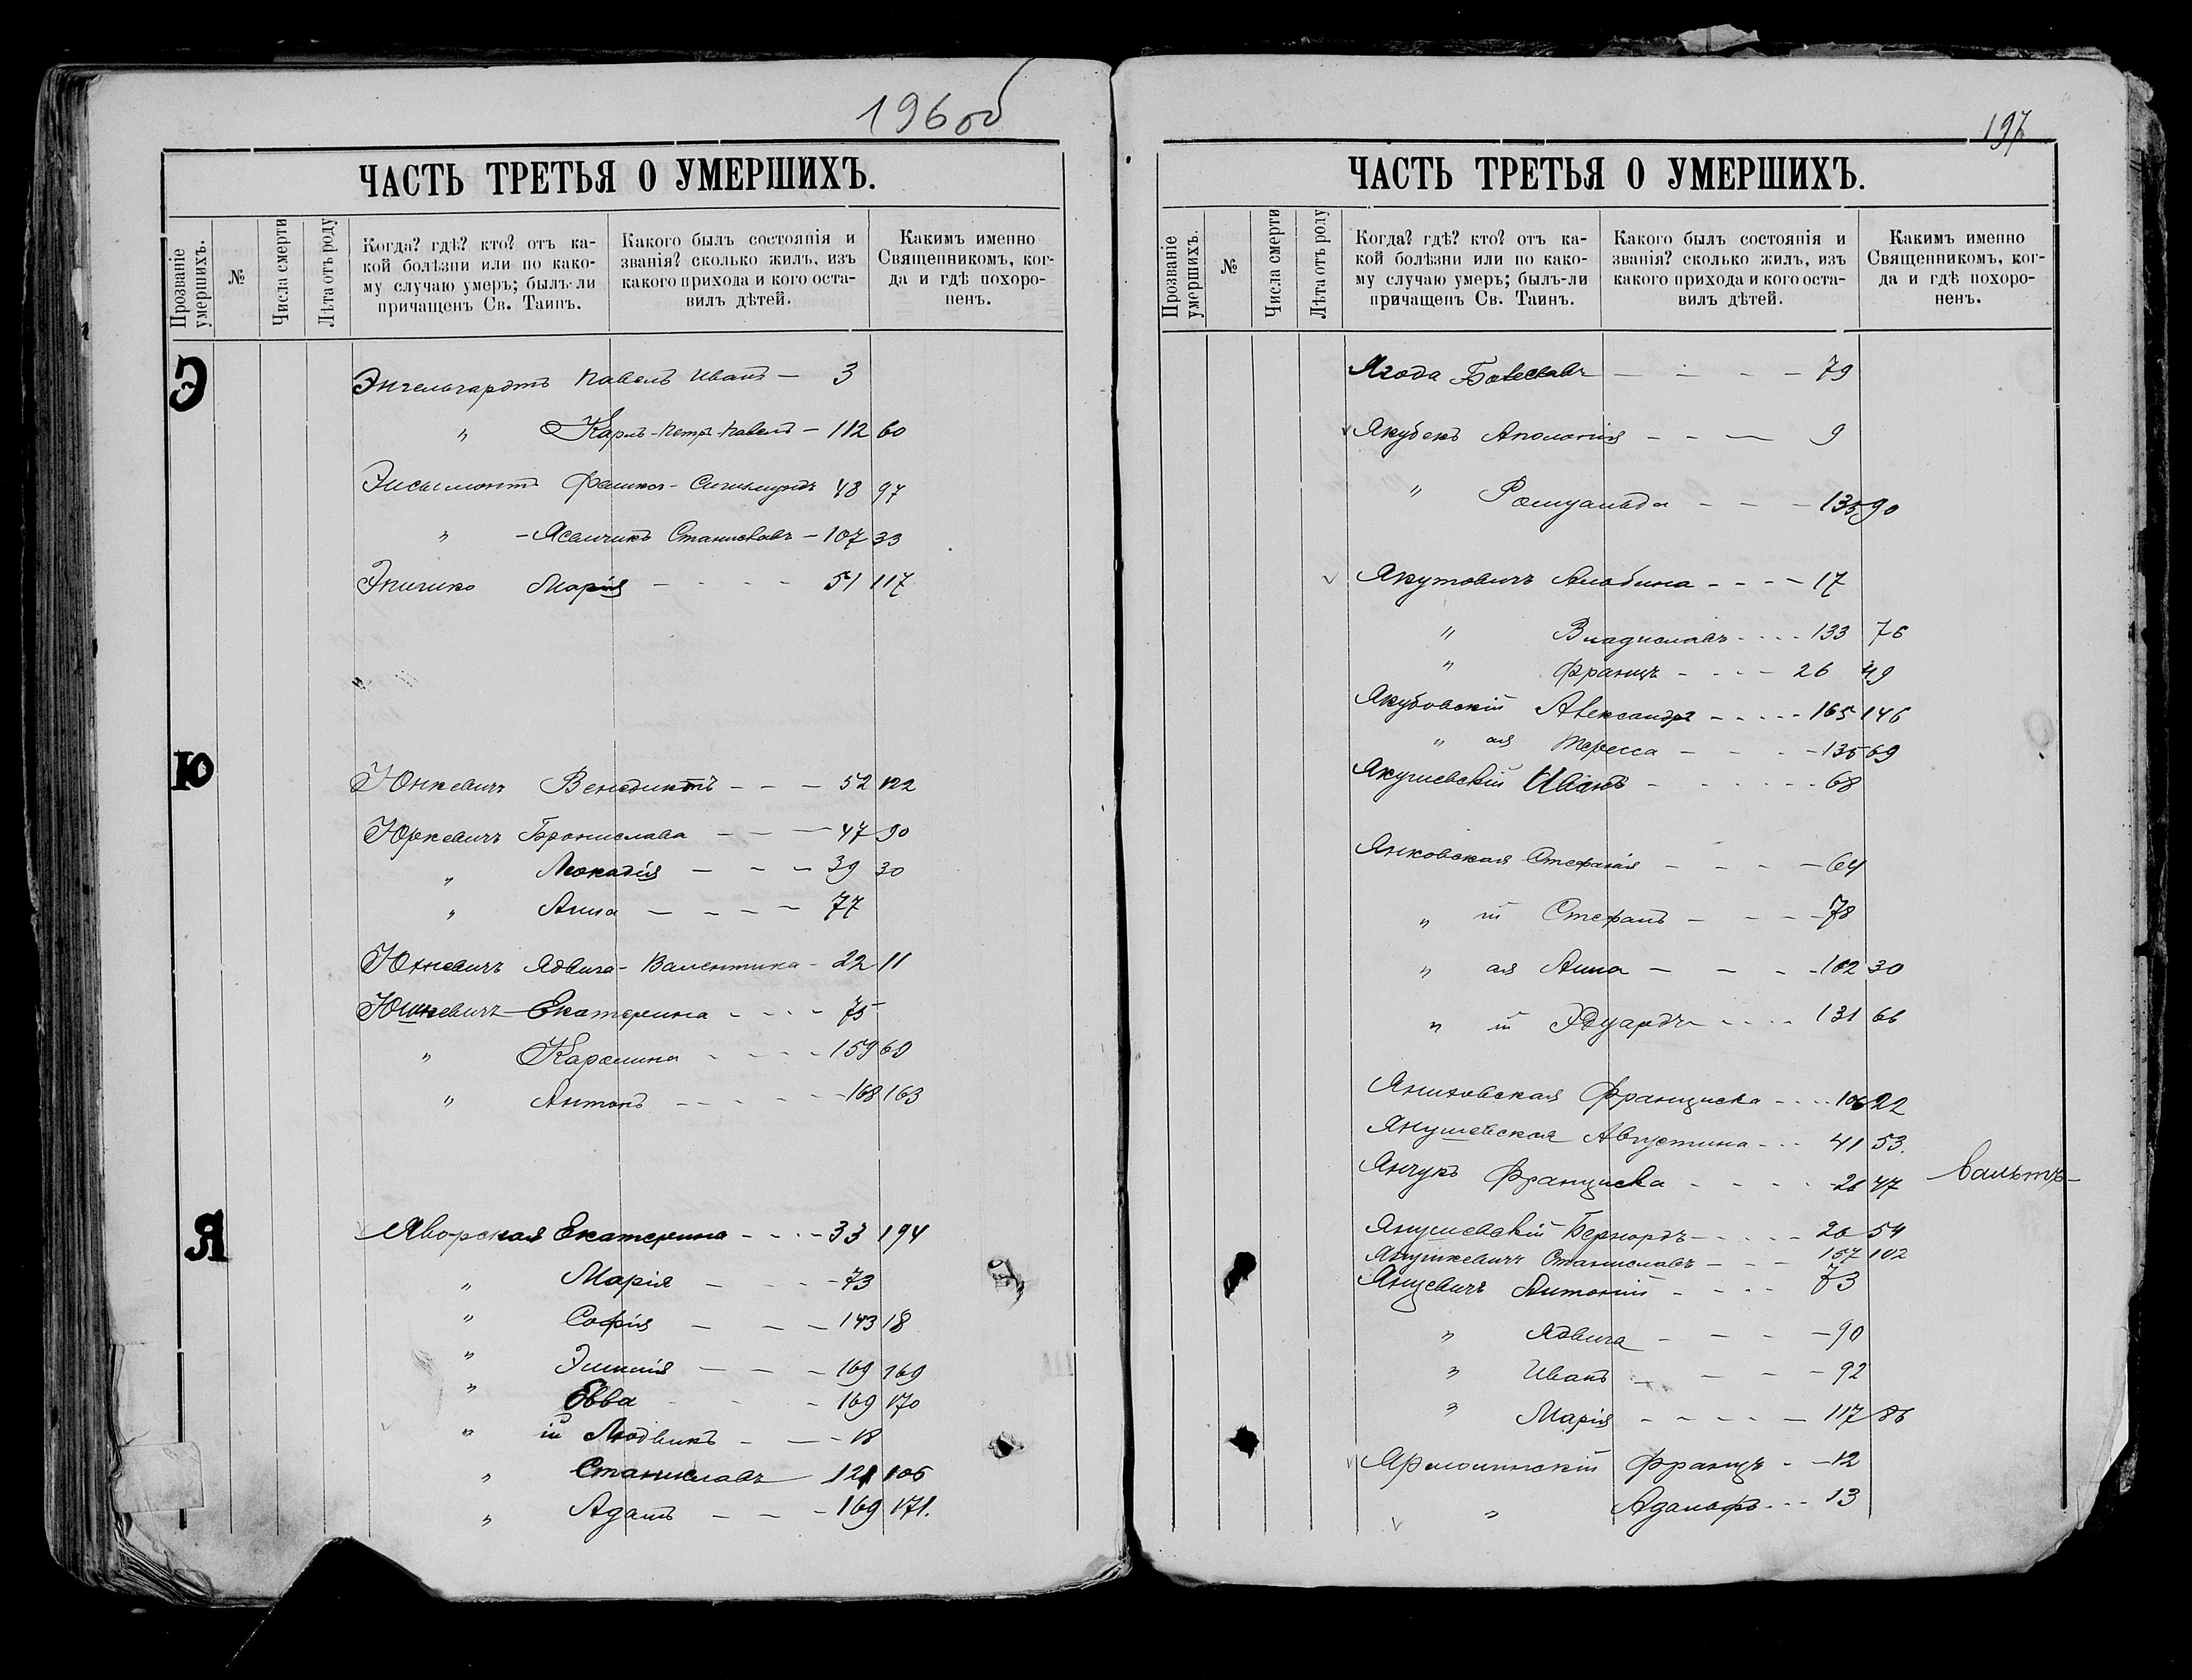 196 об
ЧАСТЬ ТРЕТЬЯ О УМЕРШИХЪ.
Прозваніе умершихъ.
№
Числа смерти
Лѣта отъ роду
Когда? гдѣ? кто? отъ ка-
кой болѣзни или по како-
му случаю умеръ; былъ-ли
причащенъ Св. Таинъ.
Какого былъ состоянія и
званія? сколько жилъ, изъ
какого прихода и кого оста-
вилъ дѣтей.
Какимъ именно
Священникомъ, ког-
да и гдѣ похоро-
ненъ.
Э
Энгельгардтъ Павелъ Иванъ — 3
" Карлъ-Петръ-Павелъ — 112 60
Эйсымонтъ Феликсъ-Сигизмундъ 48 97
" — Ясенчикъ Станиславъ — 107 33
Марія - - - - 51 117
Ю
Юнкевичъ Венедиктъ - - - 52 122
Юркевичъ Бронислава - - - 47 90
" Леокадія - - - 39 30
" Анна - - - - 77
Юхневичъ Ядвига-Валентина - 22 11
Юшкевичъ Екатерина - - - - 75
" Каролина - - - - 159 69
" Антонъ - - - - - 168 163
Я
Яворская Екатерина - - - - 33 194
" Марія - - - - 73
" Софія - - - 143 18
" Эмилія - - - 169 169
" Евва - - - 169 170
" ій Людвикъ - - - 18
" Станиславъ 121 106
" Адамъ - - - 169 171.
197
ЧАСТЬ ТРЕТЬЯ О УМЕРШИХЪ.
Прозваніе умершихъ.
№
Числа смерти
Лѣта отъ роду
Когда? гдѣ? кто? отъ ка-
кой болѣзни или по како-
му случаю умеръ; былъ-ли
причащенъ Св. Таинъ.
Какого былъ состоянія и
званія? сколько жилъ, изъ
какого прихода и кого оста-
вилъ дѣтей.
Какимъ именно
Священникомъ, ког-
да и гдѣ похоро-
ненъ.
Ягода Болеславъ - - - - - 79
Якубекъ Аполонія - - - 9
" Ромуальда - - - 135 90
Якутовичъ Альбина - - - - 17
" Владиславъ - - - - 133 76
" Францъ - - - - 26 49
Якубовскій Александръ - - - - - 165 146
" ая Тересса - - - - 135 69
Якушевскій Иванъ - - - - - - 68
Янковская Стефанія - - - - 64
" ій Стефанъ - - - - 78
" ая Анна - - - - 102 30
" ій Эдуардъ - - - - 131 66
Яниховская Франциска - - - - 106 22
Янушевская Августина - - - 41 53.
Янчукъ Франциска - - - - 26 47
Янушевскій Бернардъ - - - - - 26 54
Янушкевичъ Станиславъ - - - 157 102
Янцевичъ Антоній - - - - 73
" Ядвига - - - - 90
" Иванъ - - - - 92
" Марія - - - - - 117 86
Ярмолинскій Францъ - - 12
" Адальфъ - - - 13